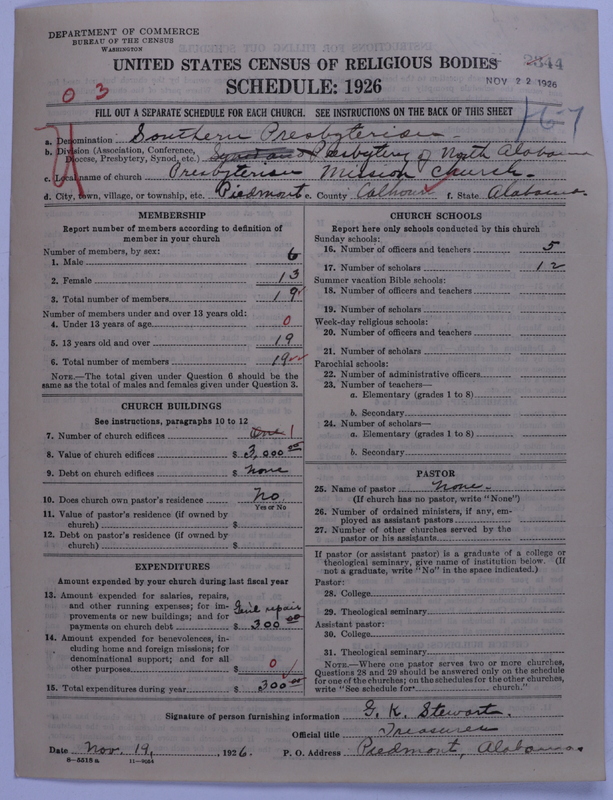 DEPARTMENT OF COMMERCE
BUREAU OF THE CENSUS
WASHINGTON
UNITED STATES CENSUS OF RELIGIOUS BODIES
2844
NOV 22 1926
SCHEDULE: 1926
0 3
FILL OUT A SEPARATE SCHEDULE FOR EACH CHURCH. SEE INSTRUCTIONS ON THE BACK OF THIS SHEET
a. Denomination Southern Presbyterian
b. Division (Association, Conference, Diocese, Presbytery, Synod, etc.) Presbytery of North Alabama
c. Local name of church Presbyterian Mission Church.
d. City, town, village, or township, etc. Piedmont e. County Calhoun f. State Alabama.
MEMBERSHIP
Report number of members according to definition of
member in your church
Number of members, by sex:
1. Male 6
2. Female 13
3. Total number of members 19
Number of members under and over 13 years old:
4. Under 13 years of age 0
5. 13 years old and over 19
6. Total number of members 19
NOTE.—The total given under Question 6 should be
same as the total of males and females given under Question 3.
CHURCH BUILDINGS
See instructions, paragraphs 10 to 12
7. Number of church edifices One 1
8. Value of church edifices $ 3,000.00
9. Debt on church edifices $ None
10. Does church own pastor's residence No
Yes or No
11. Value of pastor's residence (if owned by
church) $
12. Debt on pastor's residence (if owned by
church) $
EXPENDITURES
Amount expended by your church during last fiscal year
13. Amount expended for salaries, repairs,
and other running expenses; for im-
provements or new buildings; and for repair
payments on church debt $ 300.00
14. Amount expended for benevolences, in-
cluding home and foreign missions; for
denominational support; and for all
other purposes $ 0
15. Total expenditures during year $ 300.00
CHURCH SCHOOLS
Report here only schools conducted by this church
Sunday schools:
16. Number of officers and teachers 5
17. Number of scholars 12
Summer vacation Bible schools:
18. Number of officers and teachers
19. Number of scholars
Week-day religious schools:
20. Number of officers and teachers
21. Number of scholars
Parochial schools:
22. Number of administrative officers
23. Number of teachers—
a. Elementary (grades 1 to 8)
b. Secondary
24. Number of scholars—
a. Elementary (grades 1 to 8)
b. Secondary
PASTOR
25. Name of pastor None.
(If church has no pastor, write "None")
26. Number of ordained ministers, if any, em-
ployed as assistant pastors
27. Number of other churches served by the
pastor or his assistants
If pastor (or assistant pastor) is a graduate of a college or
theological seminary, give name of institution below. (If
not a graduate, write "No" in the space indicated.)
Pastor:
28. College
29. Theological seminary
Assistant pastor:
30. College
31. Theological seminary
NOTE.—Where one pastor serves two or more churches,
Questions 28 and 29 should be answered only on the schedule
for one of the churches; on the schedules for the other churches,
write "See schedule for church."
Signature of person furnishing information G. K. Stewart.
Official title Treasurer
Date Nov. 19, 1926. P. O. Address Piedmont, Alabama.
8—5518 a 11—9064